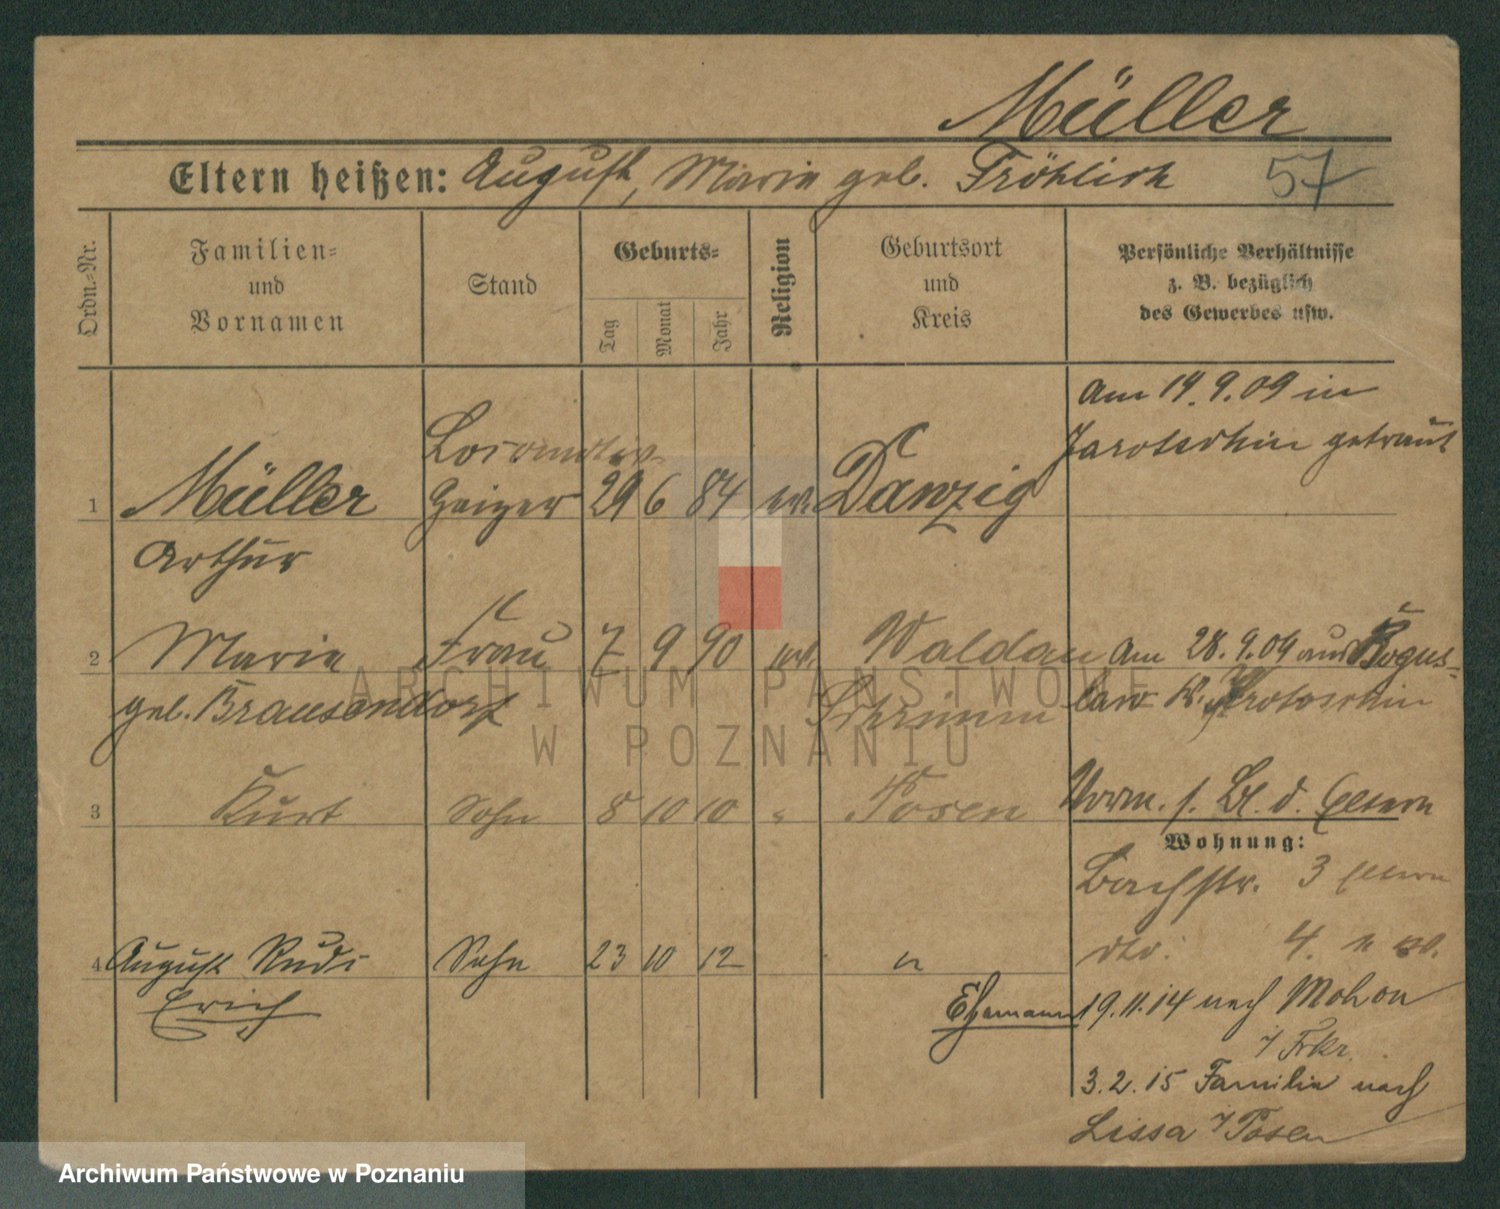 Müller
Eltern heißen: August, Marie geb. Fröhlich 57
Ordn.-Nr.
Familien-
und
Vornamen
Stand
Geburts-
Tag
Monat
Jahr
Religion
Geburtsort
und
Kreis
Persönliche Verhältnisse
z. B. bezüglich
des Gewerbes usw.
Am 14.9.09 in
Jarotschin getraut
Locomotiv-
1 Müller Heizer 29 6 84 ev. Danzig
Arthur
2 Marie Frau 7 9 90 ev. Waldau Am 28.9.09 aus Bogus-
geb. Brausendorf Schrimm law K. Krotoschin
3 Kurt Sohn 8 10 10 " Posen Vorm. s. Bl. d. Eltern
Wohnung:
Bachstr. 3 Eltern
dto. 4.
4 August Rudi Sohn 23 10 12 "
Erich
Ehemann 19.11.14 nach Mohon
i/ Frkr.
3.2.15 Familie nach
Lissa i/Posen
ARCHIWUM PAŃSTWOWE
W POZNANIU
Archiwum Państwowe w Poznaniu